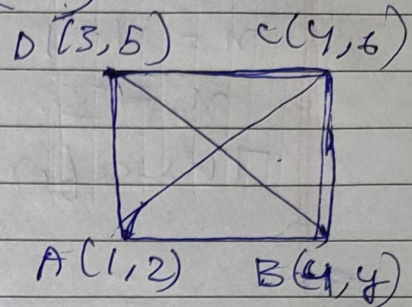 D (3,5) C(4,6)
A (1,2) B(4,y)